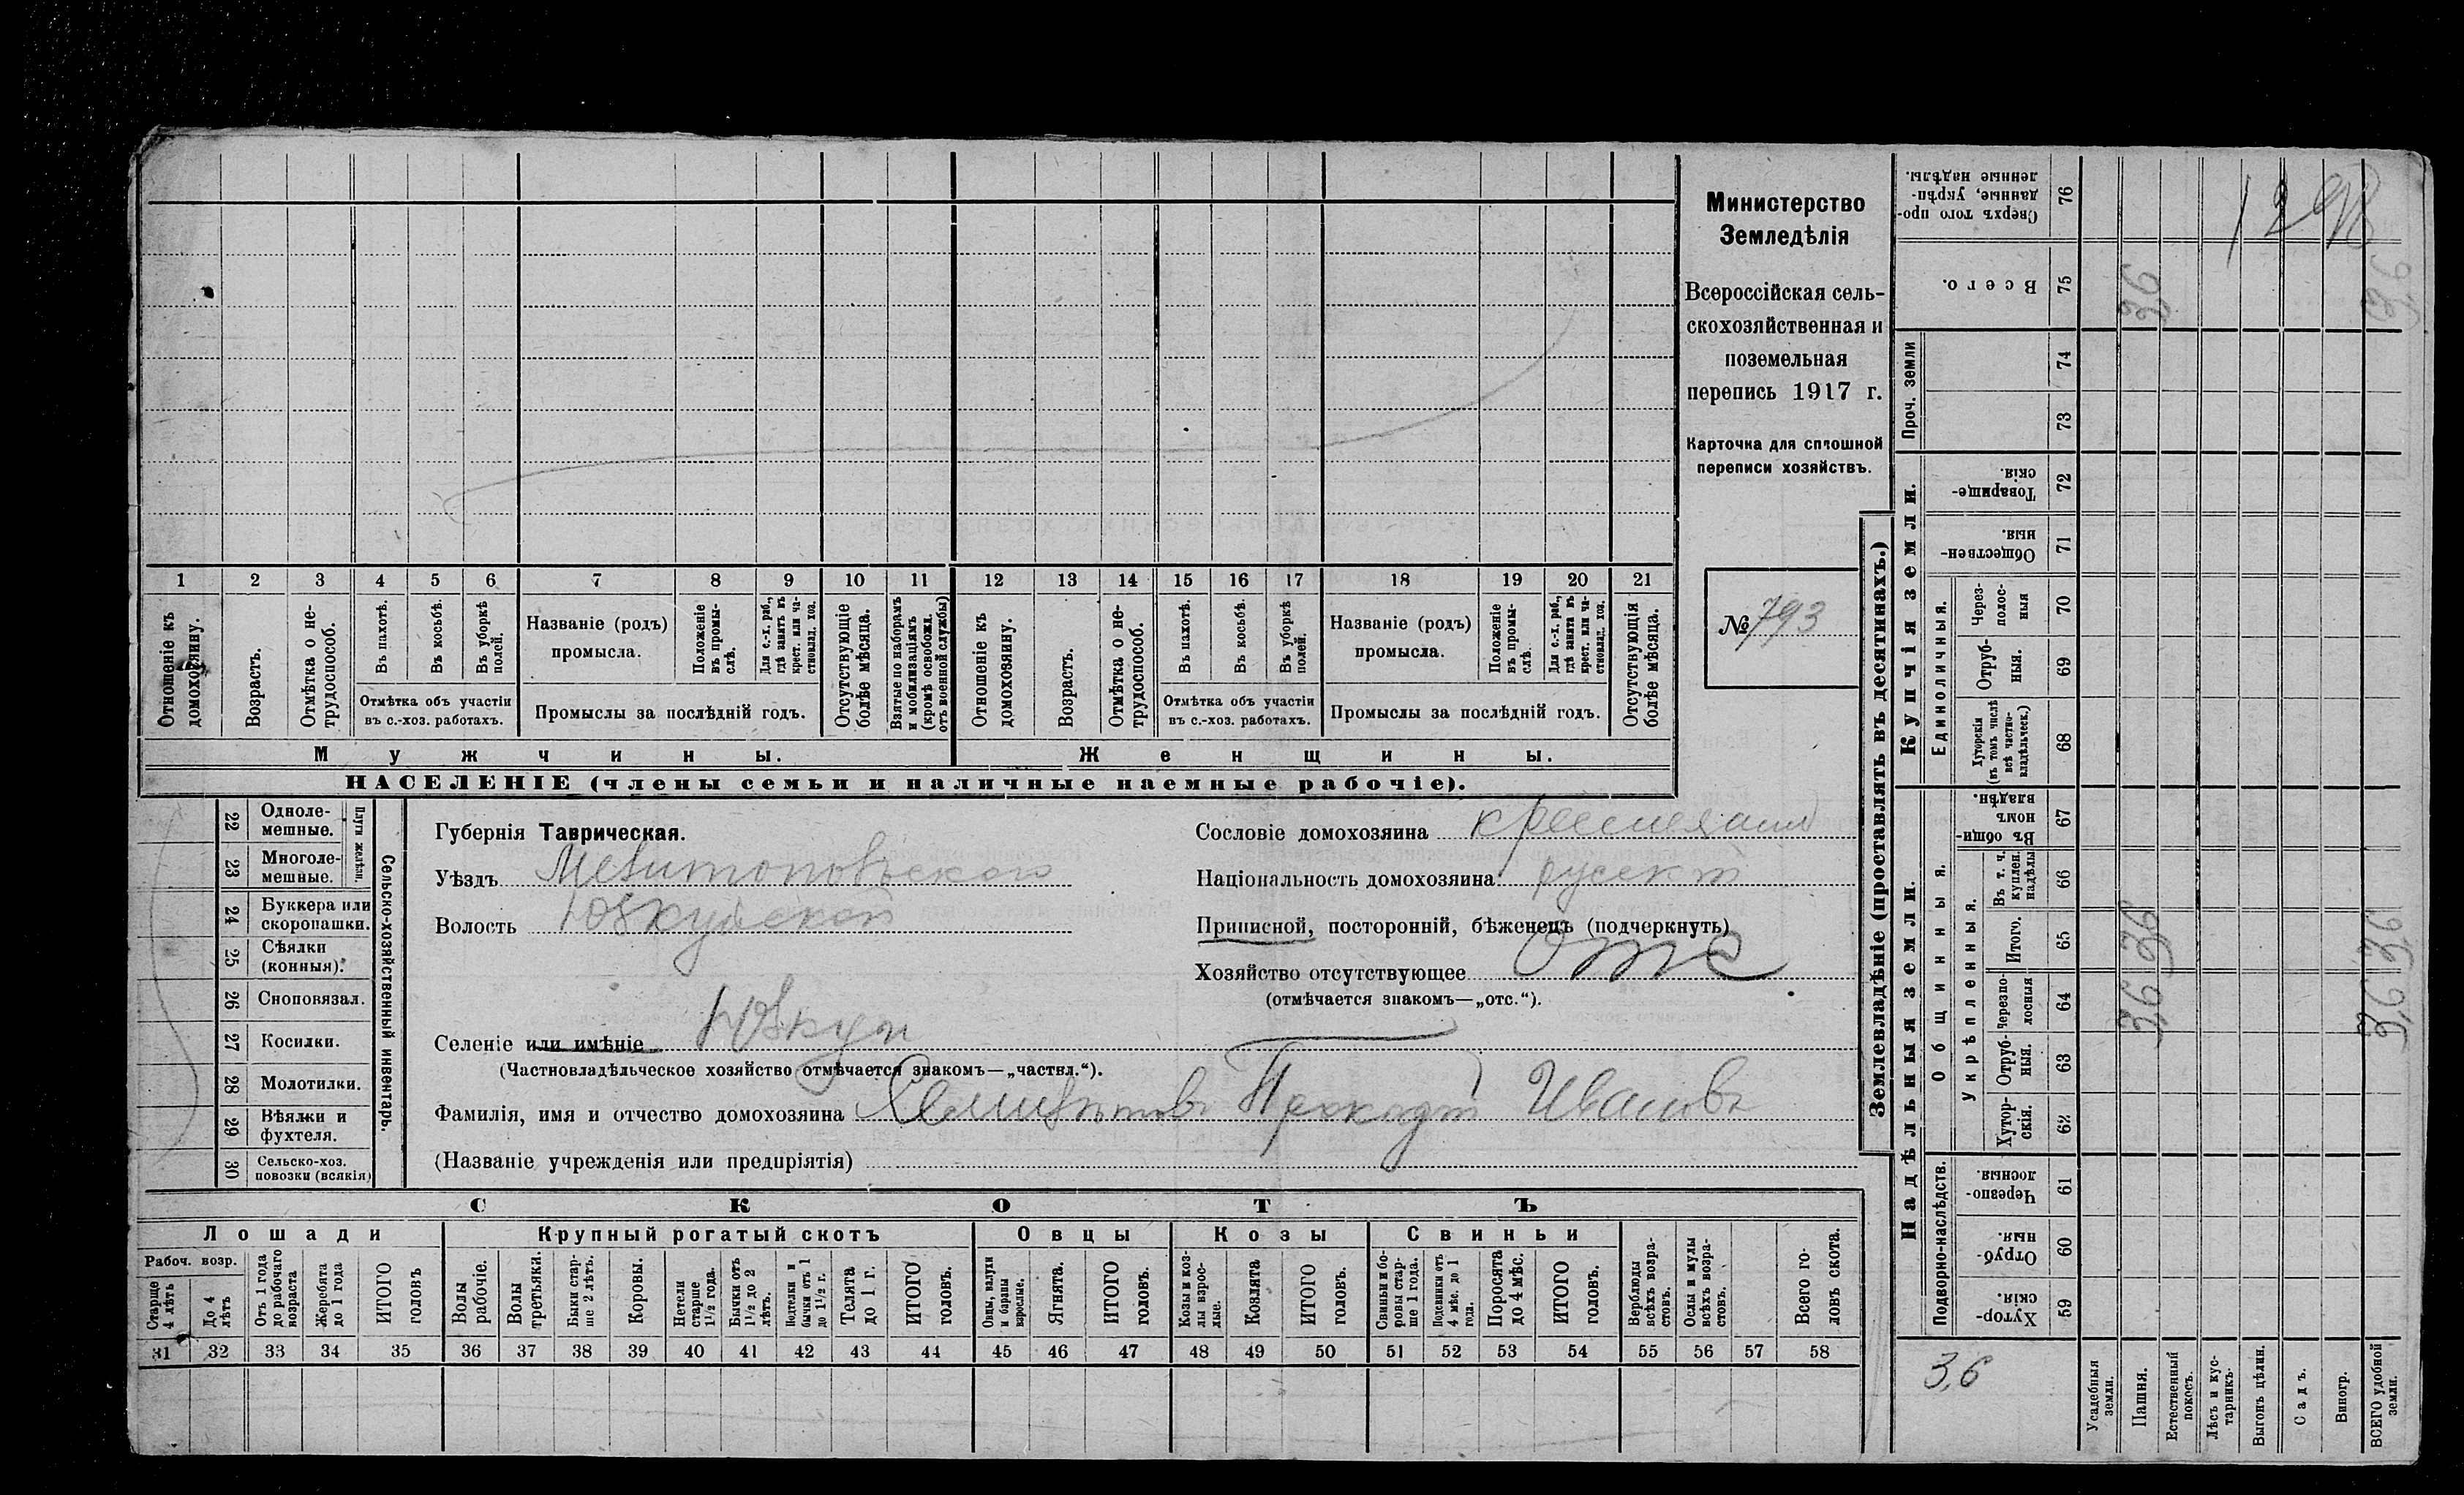 Министерство
Земледѣлія
Всероссійская сель-
скохозяйственная и
поземельная
перепись 1917 г.
Карточка для сплошной
переписи хозяйствъ.
№ 793
1 2 3 4 5 6 7 8 9 10 11 12 13 14 15 16 17 18 19 20 21
Отношеніе къ домохозяину.
Возрастъ.
Отмѣтка о не-трудоспособ.
Въ пахотѣ.
Въ косьбѣ.
Въ уборкѣ полей.
Отмѣтка объ участіи
въ с.-хоз. работахъ.
Названіе (родъ)
промысла.
Положеніе въ промы-слѣ.
Для с.-х. раб., гдѣ занятъ въ крест. или ча-стновлад. хоз.
Промыслы за послѣдній годъ.
Отсутствующіе болѣе мѣсяца.
Взятые по наборамъ и мобилизаціямъ (кромѣ освобожд. отъ военной службы)
Отношеніе къ домохозяину.
Возрастъ.
Отмѣтка о не-трудоспособ.
Въ пахотѣ.
Въ косьбѣ.
Въ уборкѣ полей.
Отмѣтка объ участіи
въ с.-хоз. работахъ.
Названіе (родъ)
промысла.
Положеніе въ промы-слѣ.
Для с.-х. раб., гдѣ занята въ крест. или ча-стновлад. хоз.
Промыслы за послѣдній годъ.
Отсутствующія болѣе мѣсяца.
Мужчины.
Женщины.
НАСЕЛЕНІЕ (члены семьи и наличные наемные рабочіе).
22 Одноле-мешные.
23 Многоле-мешные.
Плуги желѣзн.
24 Буккера или скоропашки.
25 Сѣялки (конныя).
26 Сноповязал.
27 Косилки.
28 Молотилки.
29 Вѣялки и фухтеля.
30 Сельско-хоз. повозки (всякія)
Сельско-хозяйственный инвентарь.
Губернія Таврическая.
Уѣздъ Мелитопольскаго
Волость Юзкуйской
Сословіе домохозяина крестьянинъ
Національность домохозяина русскій
Приписной, посторонній, бѣженецъ (подчеркнуть)
Хозяйство отсутствующее отс
(отмѣчается знакомъ—„отс.“).
Селеніе или имѣніе Юзкуи
(Частновладѣльческое хозяйство отмѣчается знакомъ—„частвл.“).
Фамилія, имя и отчество домохозяина Иванов
(Названіе учрежденія или предпріятія)
СКОТЪ
Лошади
Крупный рогатый скотъ
Овцы
Козы
Свиньи
Рабоч. возр.
Старше 4 лѣтъ
До 4 лѣтъ
Отъ 1 года до рабочаго возраста
Жеребята до 1 года
ИТОГО головъ
Волы рабочіе.
Волы третьяки.
Быки стар-ше 2 лѣтъ.
Коровы.
Нетели старше 1 1/2 года.
Бычки отъ 1 1/2 до 2 лѣтъ.
Подтелки и бычки отъ 1 до 1 1/2 г.
Телята до 1 г.
ИТОГО головъ.
Овцы, валухи и бараны взрослые.
Ягнята.
ИТОГО головъ.
Козы и коз-лы взрос-лые.
Козлята
ИТОГО головъ.
Свиньи и бо-ровы стар-ше 1 года.
Подсвинки отъ 4 мѣс. до 1 года.
Поросята до 4 мѣс.
ИТОГО головъ.
Верблюды всѣхъ возра-стовъ.
Ослы и мулы всѣхъ возра-стовъ.
Всего го-ловъ скота.
31 32 33 34 35 36 37 38 39 40 41 42 43 44 45 46 47 48 49 50 51 52 53 54 55 56 57 58
Землевладѣніе (проставлять въ десятинахъ.)
Надѣльныя земли.
Купчія земли.
Проч. земли
Подворно-наслѣдств.
Общинныя.
Укрѣпленныя.
Единоличныя.
59 Хутор-скія.
60 Отруб-ныя.
61 Черезпо-лосныя.
62 Хутор-скія.
63 Отруб-ныя.
64 Черезпо-лосныя 3,6 3,6
65 Итого. 3,6 3,6
66 Въ т. ч. куплен. надѣлы
67 Въ общин-номъ владѣн.
68 Хуторскія (въ томъ числѣ всѣ частно-владѣльческ.)
69 Отруб-ныя.
70 Через-полос-ныя
71 Обществен-ныя.
72 Товарище-скія.
73
74
75 Всего. 3,6 3,6
76 Сверхъ того про-данные, укрѣп-ленные надѣлы.
1298
3,6
Усадебныя земли.
Пашня.
Естественный покосъ.
Лѣсъ и кус-тарникъ.
Выгонъ цѣлин.
Садъ.
Виногр.
ВСЕГО удобной земли.